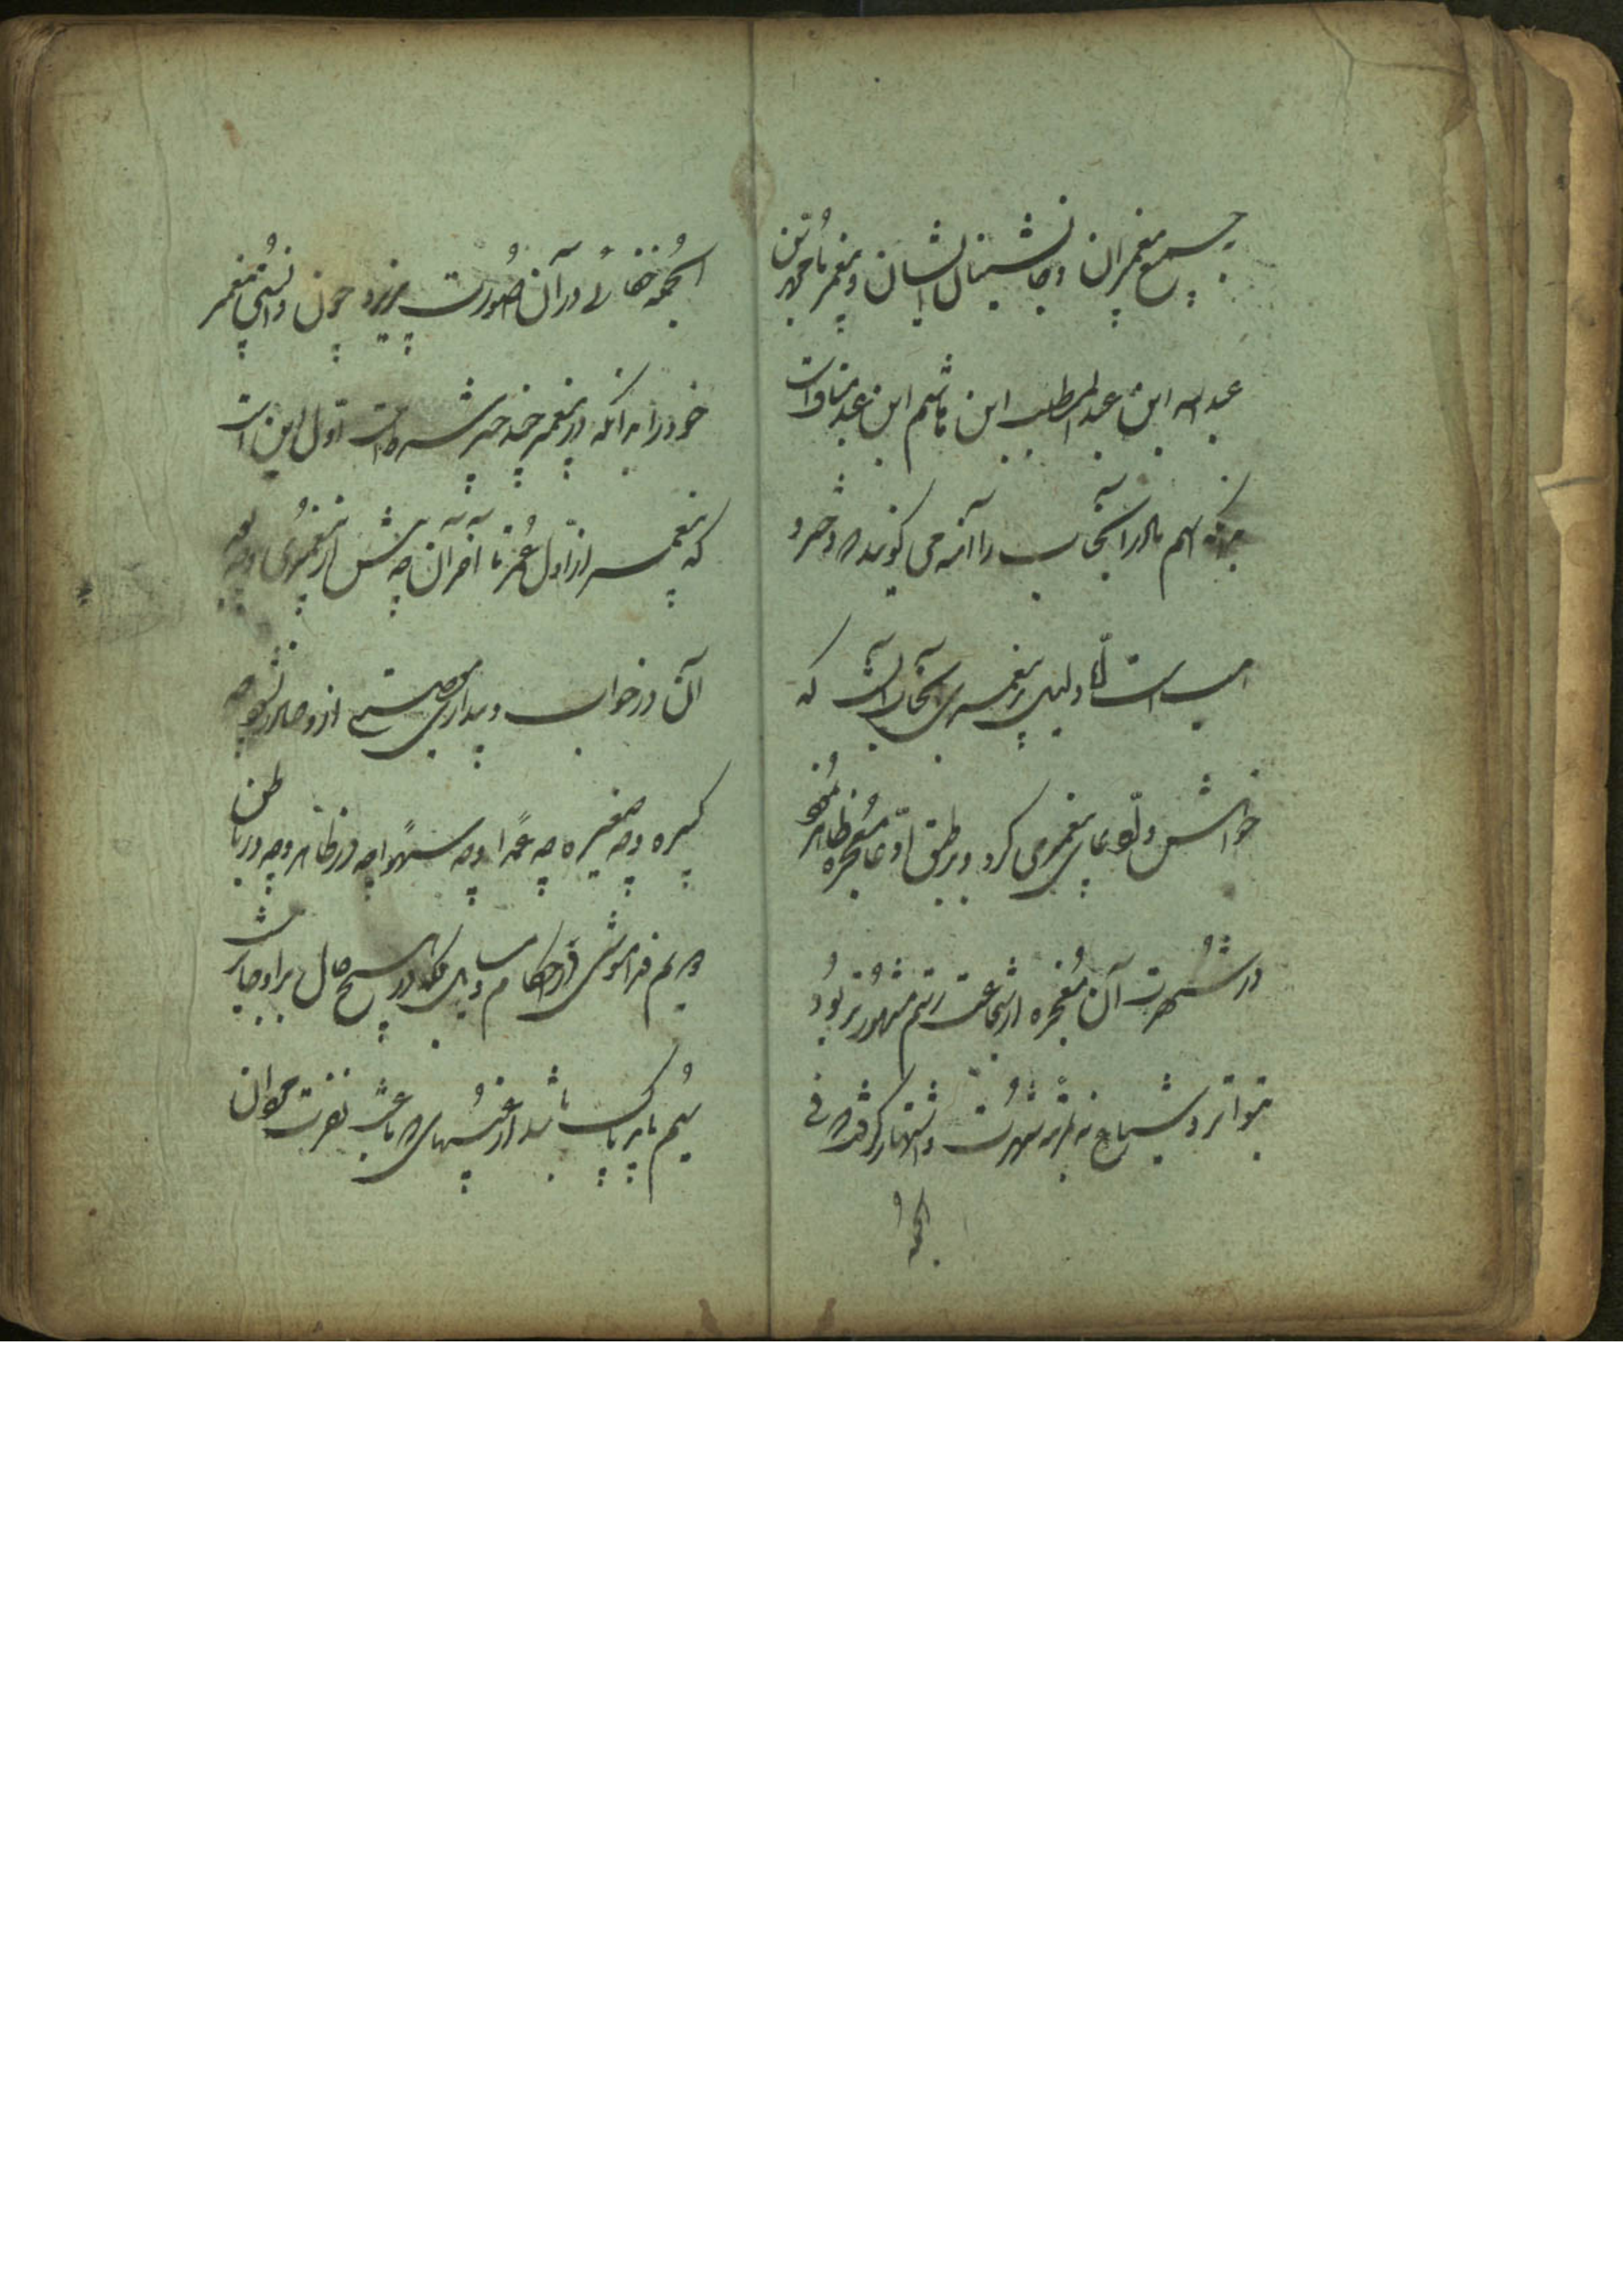 جمیع پیغمبران و جانشینان ایشان و پیغمبر ما محمد بن
عبد الله ابن عبد المطلب ابن هاشم ابن عبد مناف است
اسم مادر آنجناب را آمنه می گویند و دختر و
است امّا دلیل پیغمبری آنجناب آنست که
خواهش ادّعای پیغمبری کرد و بر طبق ادّعا معجزه ظاهر نمود
در شُهرت آن معجزه از شجاعت رستم مشهورتر بُود
بتواتر و شیاع بمرتبه شُهرت و اشتهار گرفته
که
خفائی در آن صُورت پذیرد چون دانستی پیغمبر
خود را بدانکه در پیغمبر چند چیز شرط است اوّل این است
که پیغمبر از اوّل عُمر تا آخر آن چه پیش از پیغمبری و چه بعد
آن در خواب و بیداری معصیتی از او صادر نشود چه
کبیره و چه صغیره چه عمداً و چه سهواً چه در ظاهر و چه در باطن
دویم فراموشی در احکام و در هیچ حال بر او جایز نیست
سیُم باید پاک باشد از عیبهای که باعث نفرت